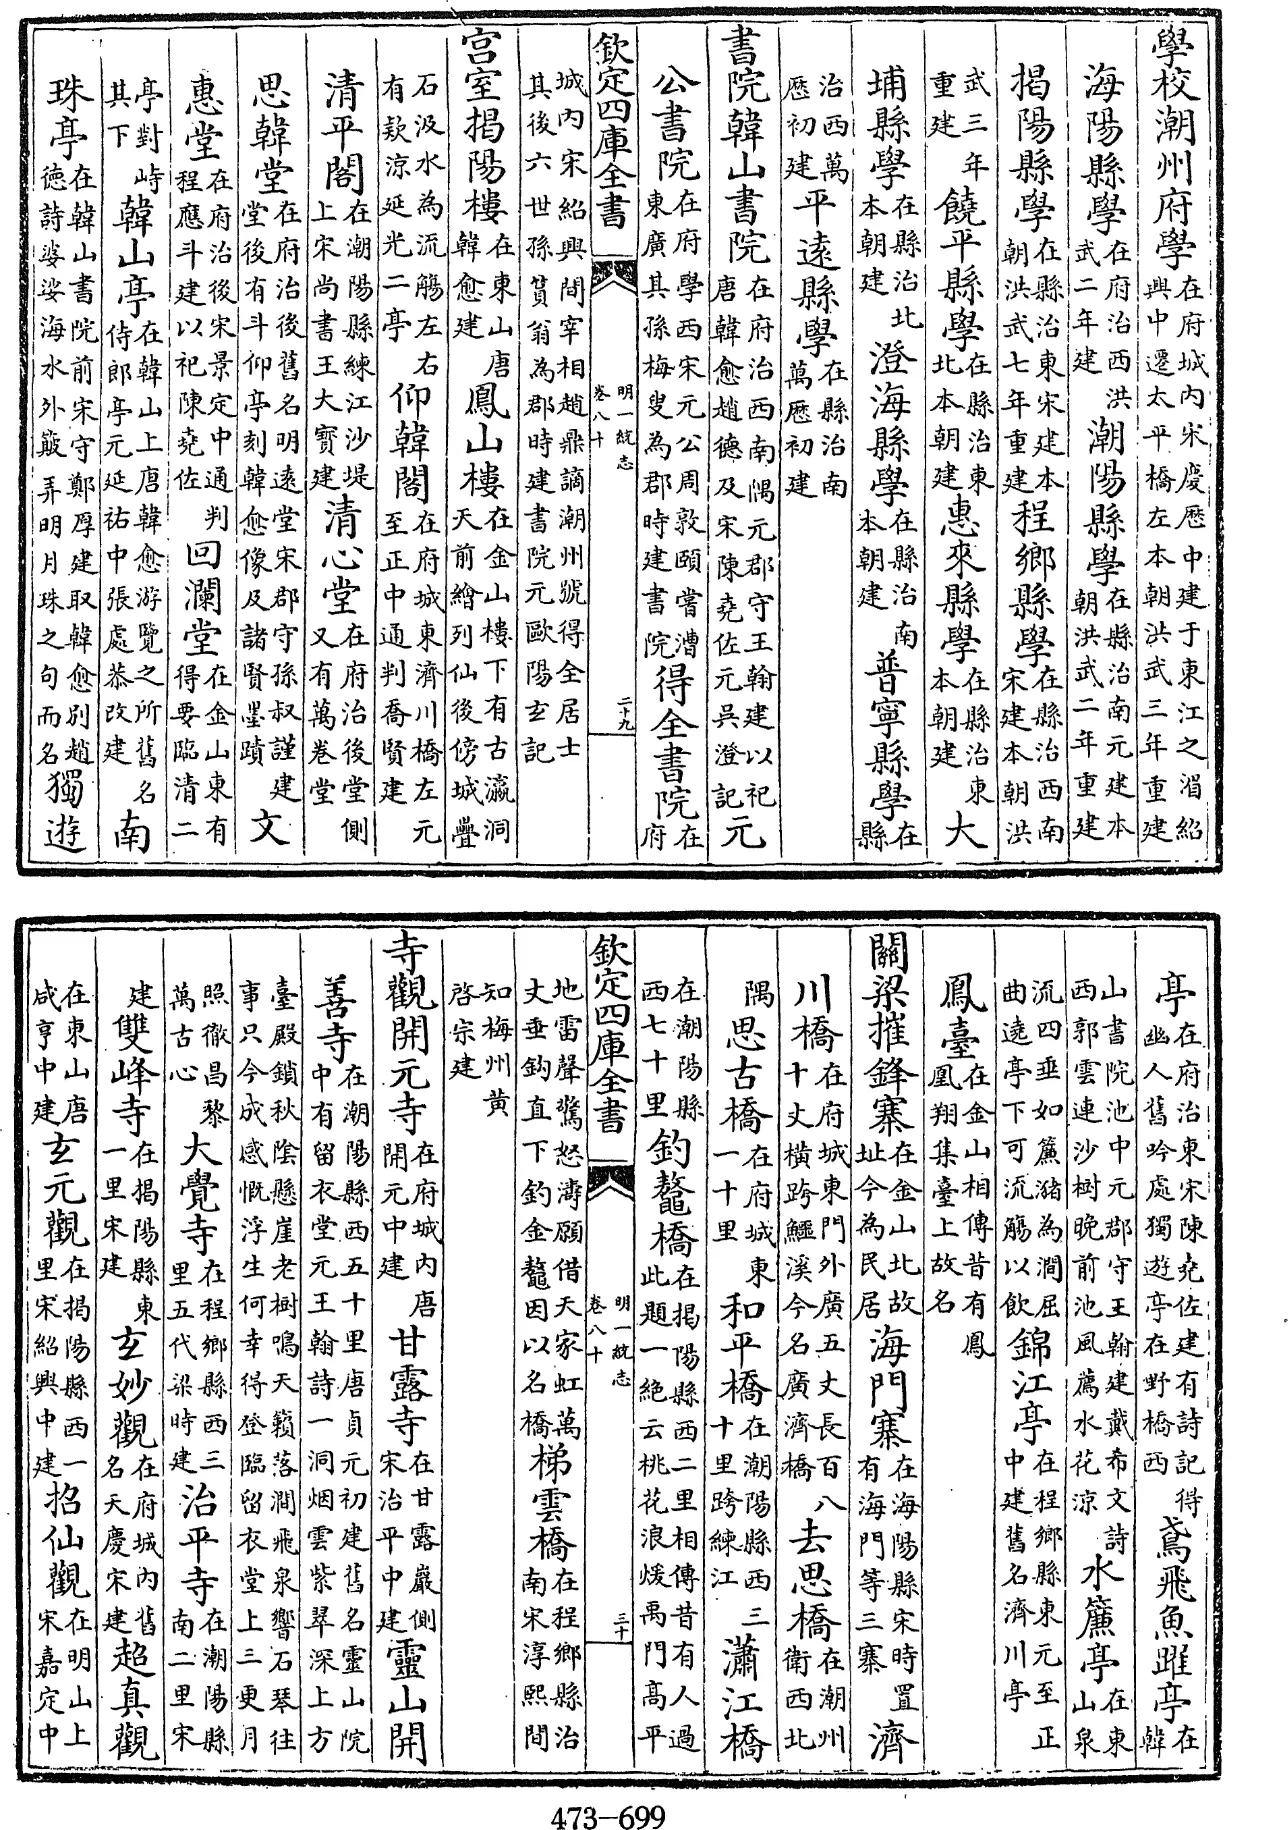 學校潮州府學在府城内宋慶厯中建于東江之湄紹興中遷太平橋左本朝洪武三年重建
海陽縣學在府治西洪武二年建潮陽縣學在縣治南元建本朝洪武二年重建
揭陽縣學在縣治東宋建本朝洪武七年重建程鄉縣學在縣治西南宋建本朝洪
武三年重建饒平縣學在縣治東北本朝建惠來縣學在縣治東本朝建大
埔縣學在縣治北本朝建澄海縣學在縣治南本朝建普寧縣學在縣
治西萬厯初建平遠縣學在縣治南萬厯初建
書院韓山書院在府治西南隅元郡守王翰建以祀唐韓愈趙德及宋陳堯佐元吳澄記元
公書院在府學西宋元公周敦頤嘗漕東廣其孫梅叟為郡時建書院得全書院在府
欽定四庫全書 明一統志卷八十 二十九
城内宋紹興間宰相趙鼎謫潮州號得全居士其後六世孫篔翁為郡時建書院元歐陽玄記
宮室揭陽樓在東山唐韓愈建鳳山樓在金山樓下有古瀛洞天前繪列仙後傍城疊
石汲水為流觴左右有款涼延光二亭仰韓閣在府城東濟川橋左元至正中通判喬賢建
清平閣在潮陽縣練江沙堤上宋尚書王大寳建清心堂在府治後堂側又有萬卷堂
思韓堂在府治後舊名明遠堂宋郡守孫叔謹建堂後有斗仰亭刻韓愈像及諸賢墨蹟文
惠堂在府治後宋景定中通判程應斗建以祀陳堯佐回瀾堂在金山東有得要臨清二
亭對峙其下韓山亭在韓山上唐韓愈游覽之所舊名侍郎亭元延祐中張處恭改建南
珠亭在韓山書院前宋守鄭厚建取韓愈别趙德詩婆娑海水外簸弄明月珠之句而名獨遊
亭在府治東宋陳堯佐建有詩記得幽人舊吟處獨遊亭在野橋西鳶飛魚躍亭在韓
山書院池中元郡守王翰建戴希文詩西郭雲連沙樹晚前池風薦水花涼水簾亭在東山泉
流四垂如簾潴為澗屈曲遶亭下可流觴以飲錦江亭在程鄉縣東元至正中建舊名濟川亭
鳳臺在金山相傳昔有鳳凰翔集臺上故名
關梁摧鋒寨在金山北故址今為民居海門寨在海陽縣宋時置有海門等三寨濟
川橋在府城東門外廣五丈長百八十丈橫跨鱷溪今名廣濟橋去思橋在潮州衛西北
隅思古橋在府城東一十里和平橋在潮陽縣西三十里跨練江瀟江橋
在潮陽縣西七十里釣鼇橋在揭陽縣西二里相傳昔有人過此題一絶云桃花浪煖禹門髙平
欽定四庫全書 明一統志卷八十 三十
地雷聲驚怒濤願借天家虹萬丈垂鈎直下釣金鼇因以名橋梯雲橋在程鄉縣治南宋淳熙間
知梅州黄啓宗建
寺觀開元寺在府城内唐開元中建甘露寺在甘露巖側宋治平中建靈山開
善寺在潮陽縣西五十里唐貞元初建舊名靈山院中有留衣堂元王翰詩一洞烟雲紫翠深上方
臺殿鎖秋陰懸崖老樹鳴天籟落澗飛泉響石琴往事只今成感慨浮生何幸得登臨留衣堂上三更月
照徹昌黎萬古心大覺寺在程鄉縣西三里五代梁時建治平寺在潮陽縣南二里宋
建雙峰寺在揭陽縣東一里宋建玄妙觀在府城内舊名天慶宋建超真觀
在東山唐咸亨中建玄元觀在揭陽縣西一里宋紹興中建招仙觀在明山上宋嘉定中
473-699